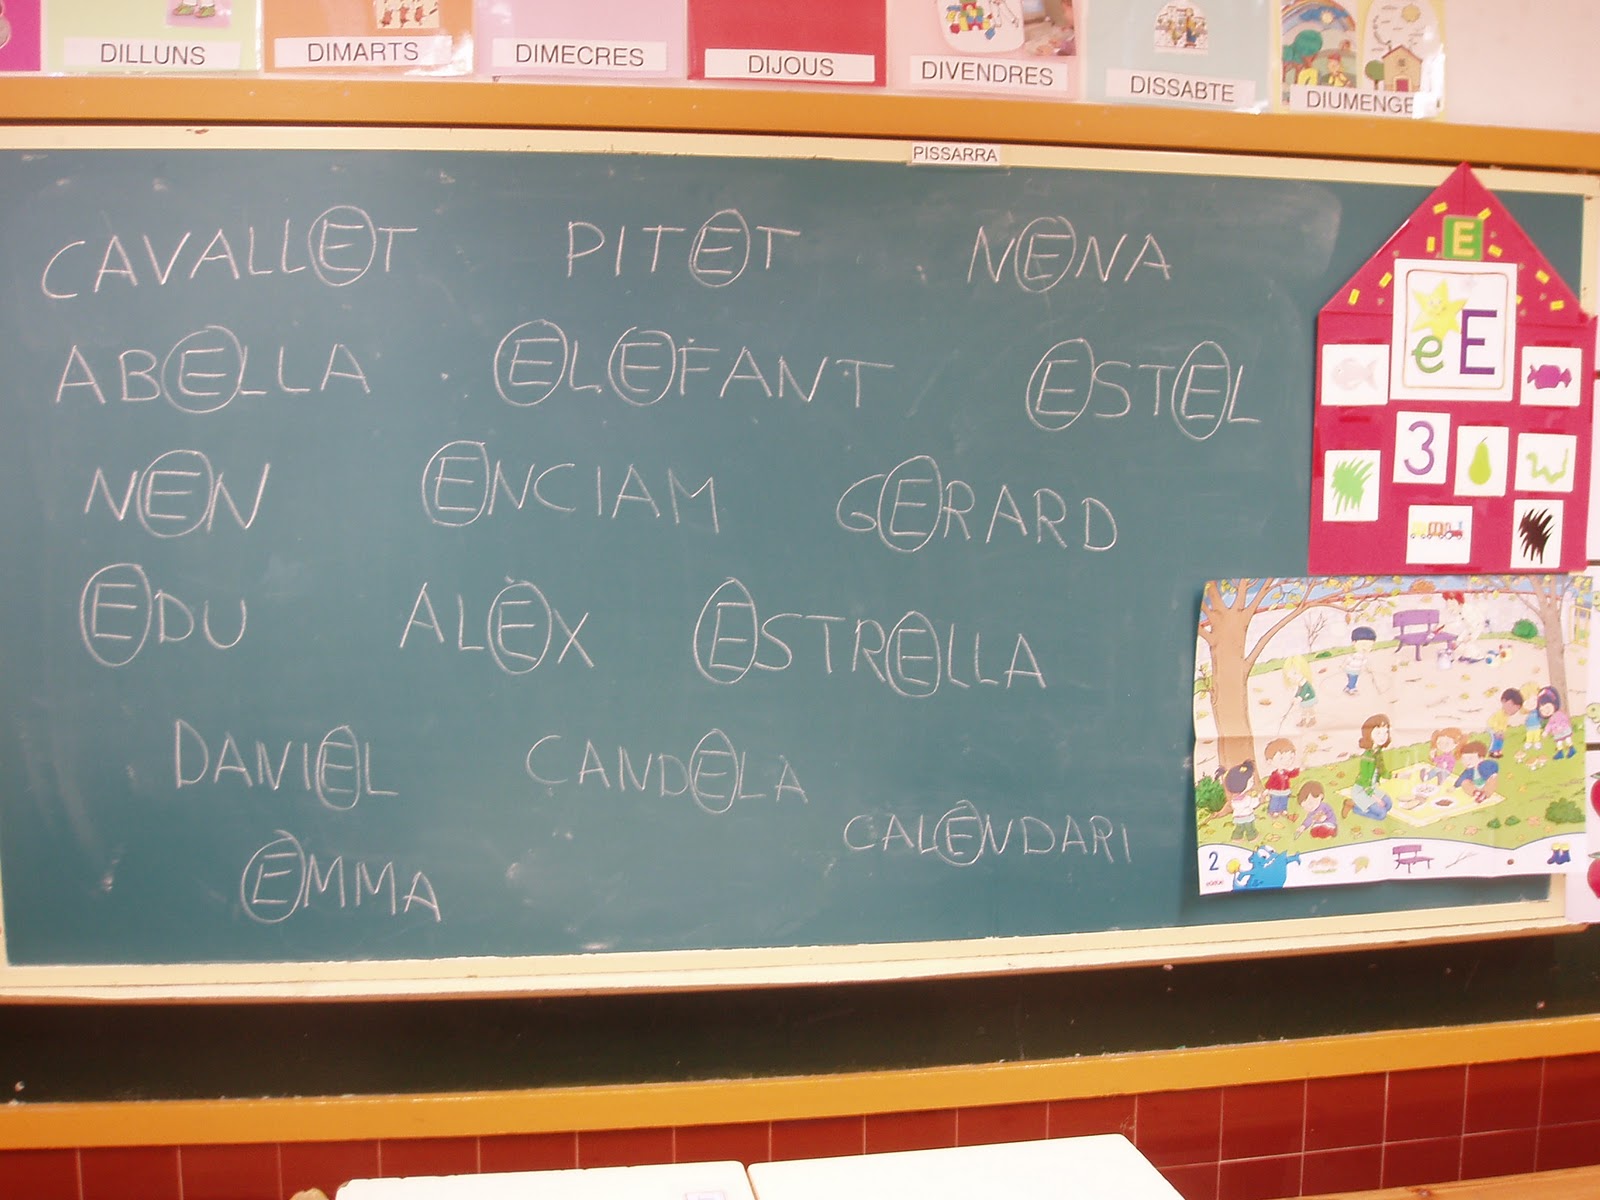 DILLUNS DIMARTS DIMECRES DIJOUS DIVENDRES DISSABTE DIUMENGE
PISSARRA
CAVALLET PITET NENA
E
ABELLA ELEFANT ESTEL
e E
NEN ENCIAM GERARD
3
EDU ALEX ESTRELLA
DANIEL CANDELA
CALENDARI
EMMA
2